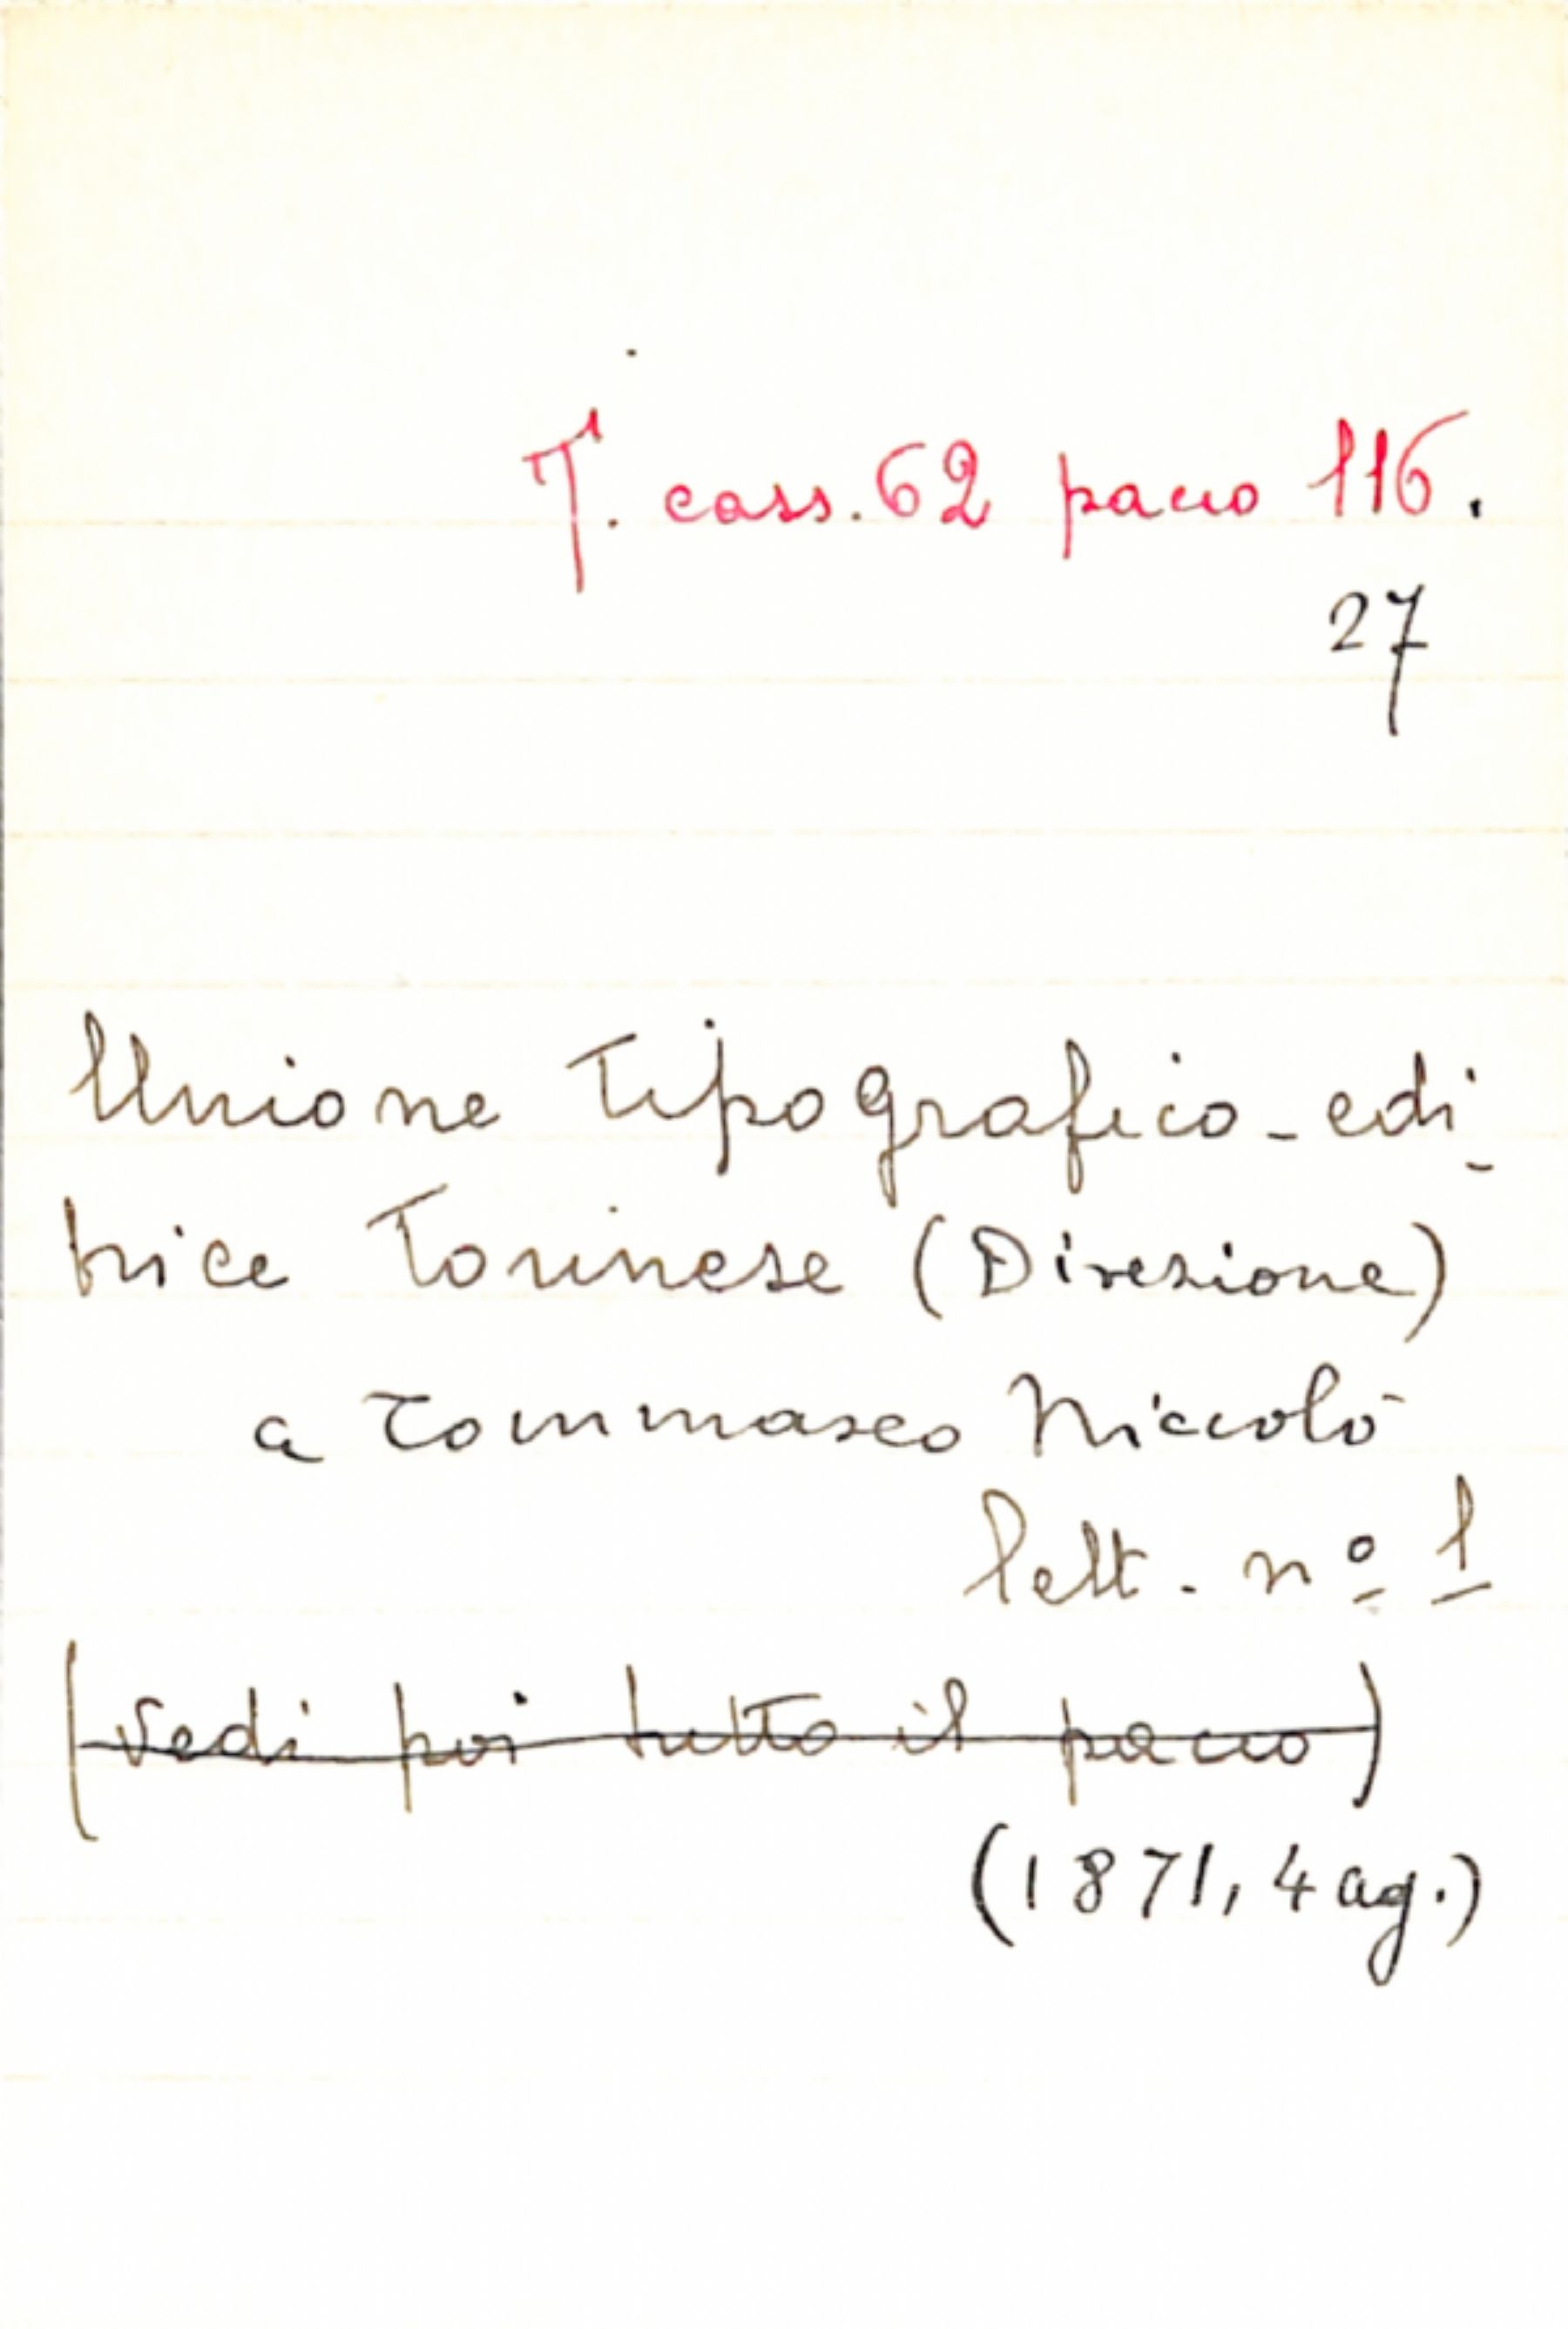 T. cass. 62 pacco 116.
27
Unione Tipografico-edi-
trice Torinese (Direzione)
a Tommaseo Niccolò
lett. nº 1
(vedi poi tutto il pacco)
(1871, 4 ag.)